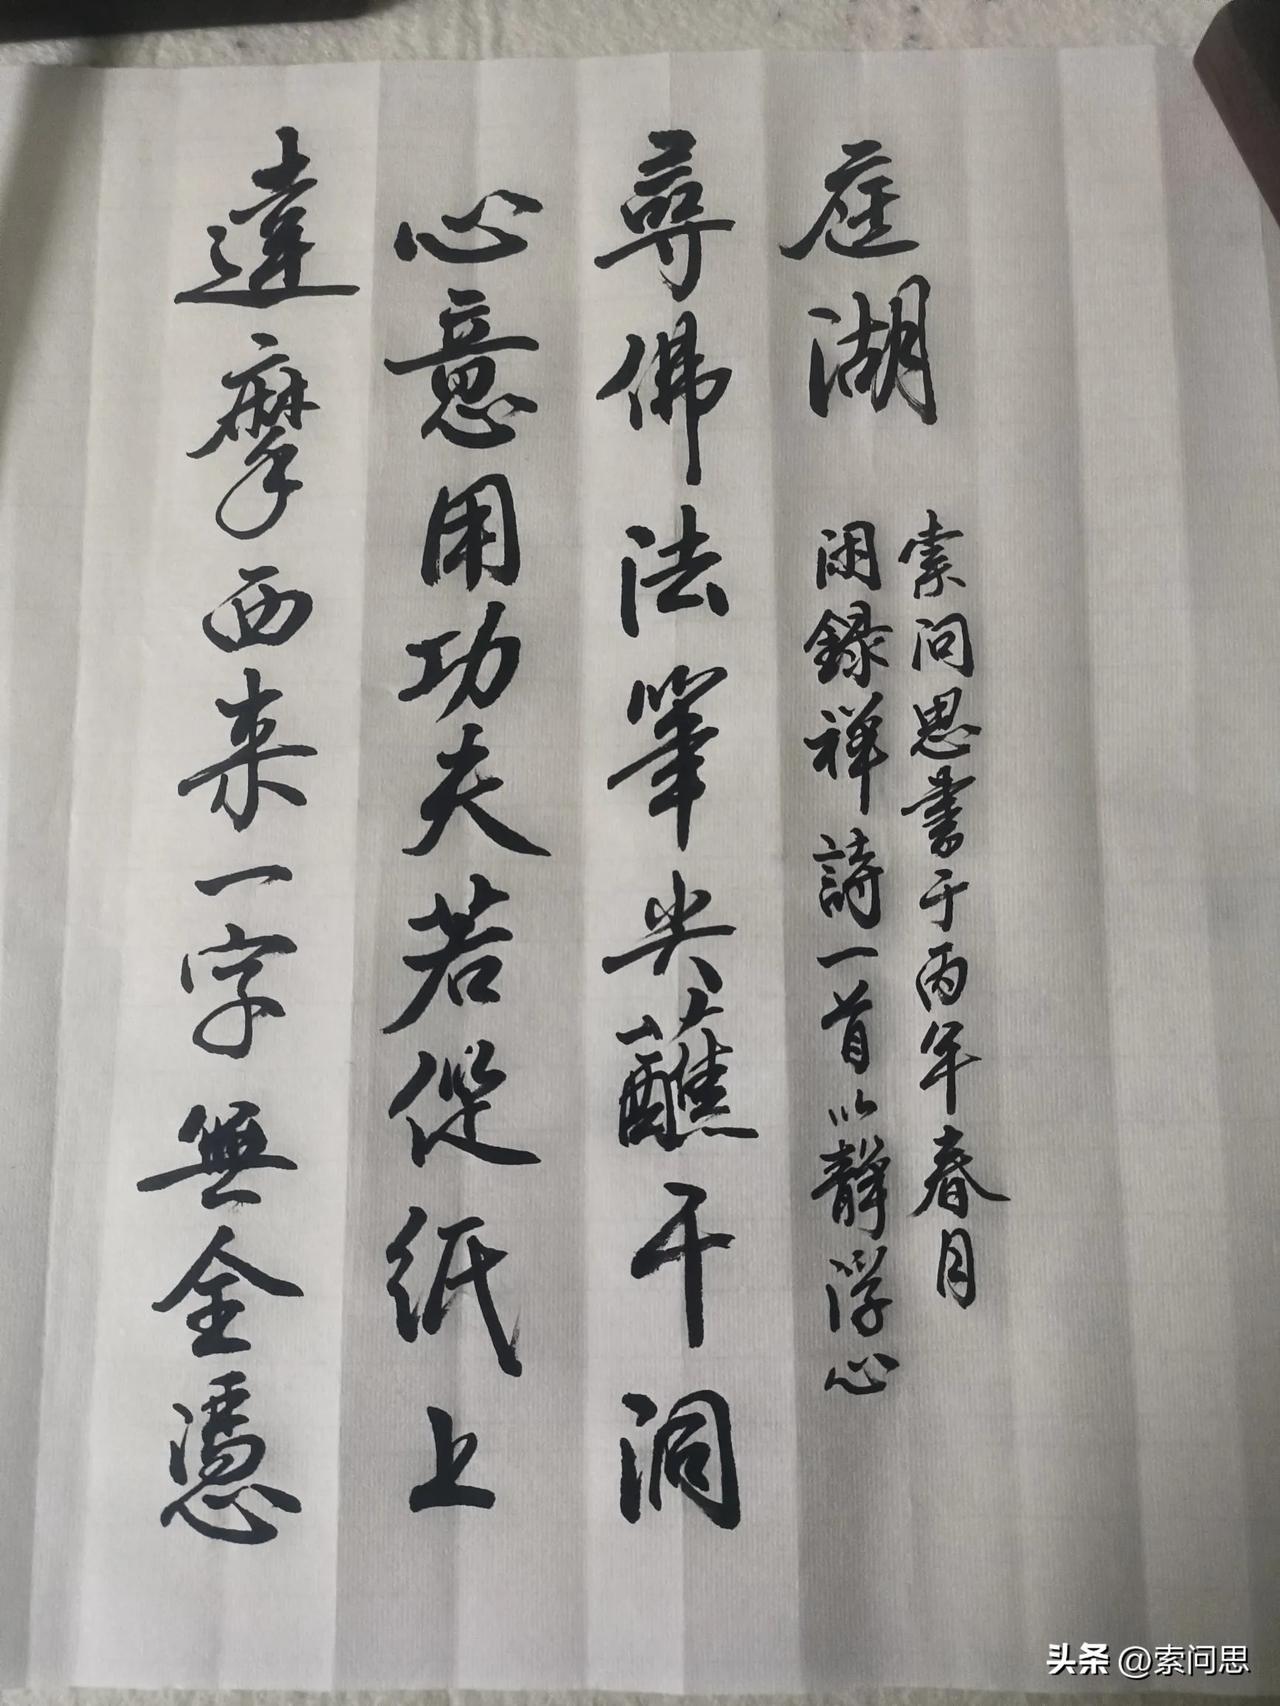 達摩西来一字無全憑
心意用功夫若從紙上
尋佛法筆尖蘸干洞
庭湖
闲録禅詩一首以靜浮心
索问思書于丙年春月
头条 @索问思